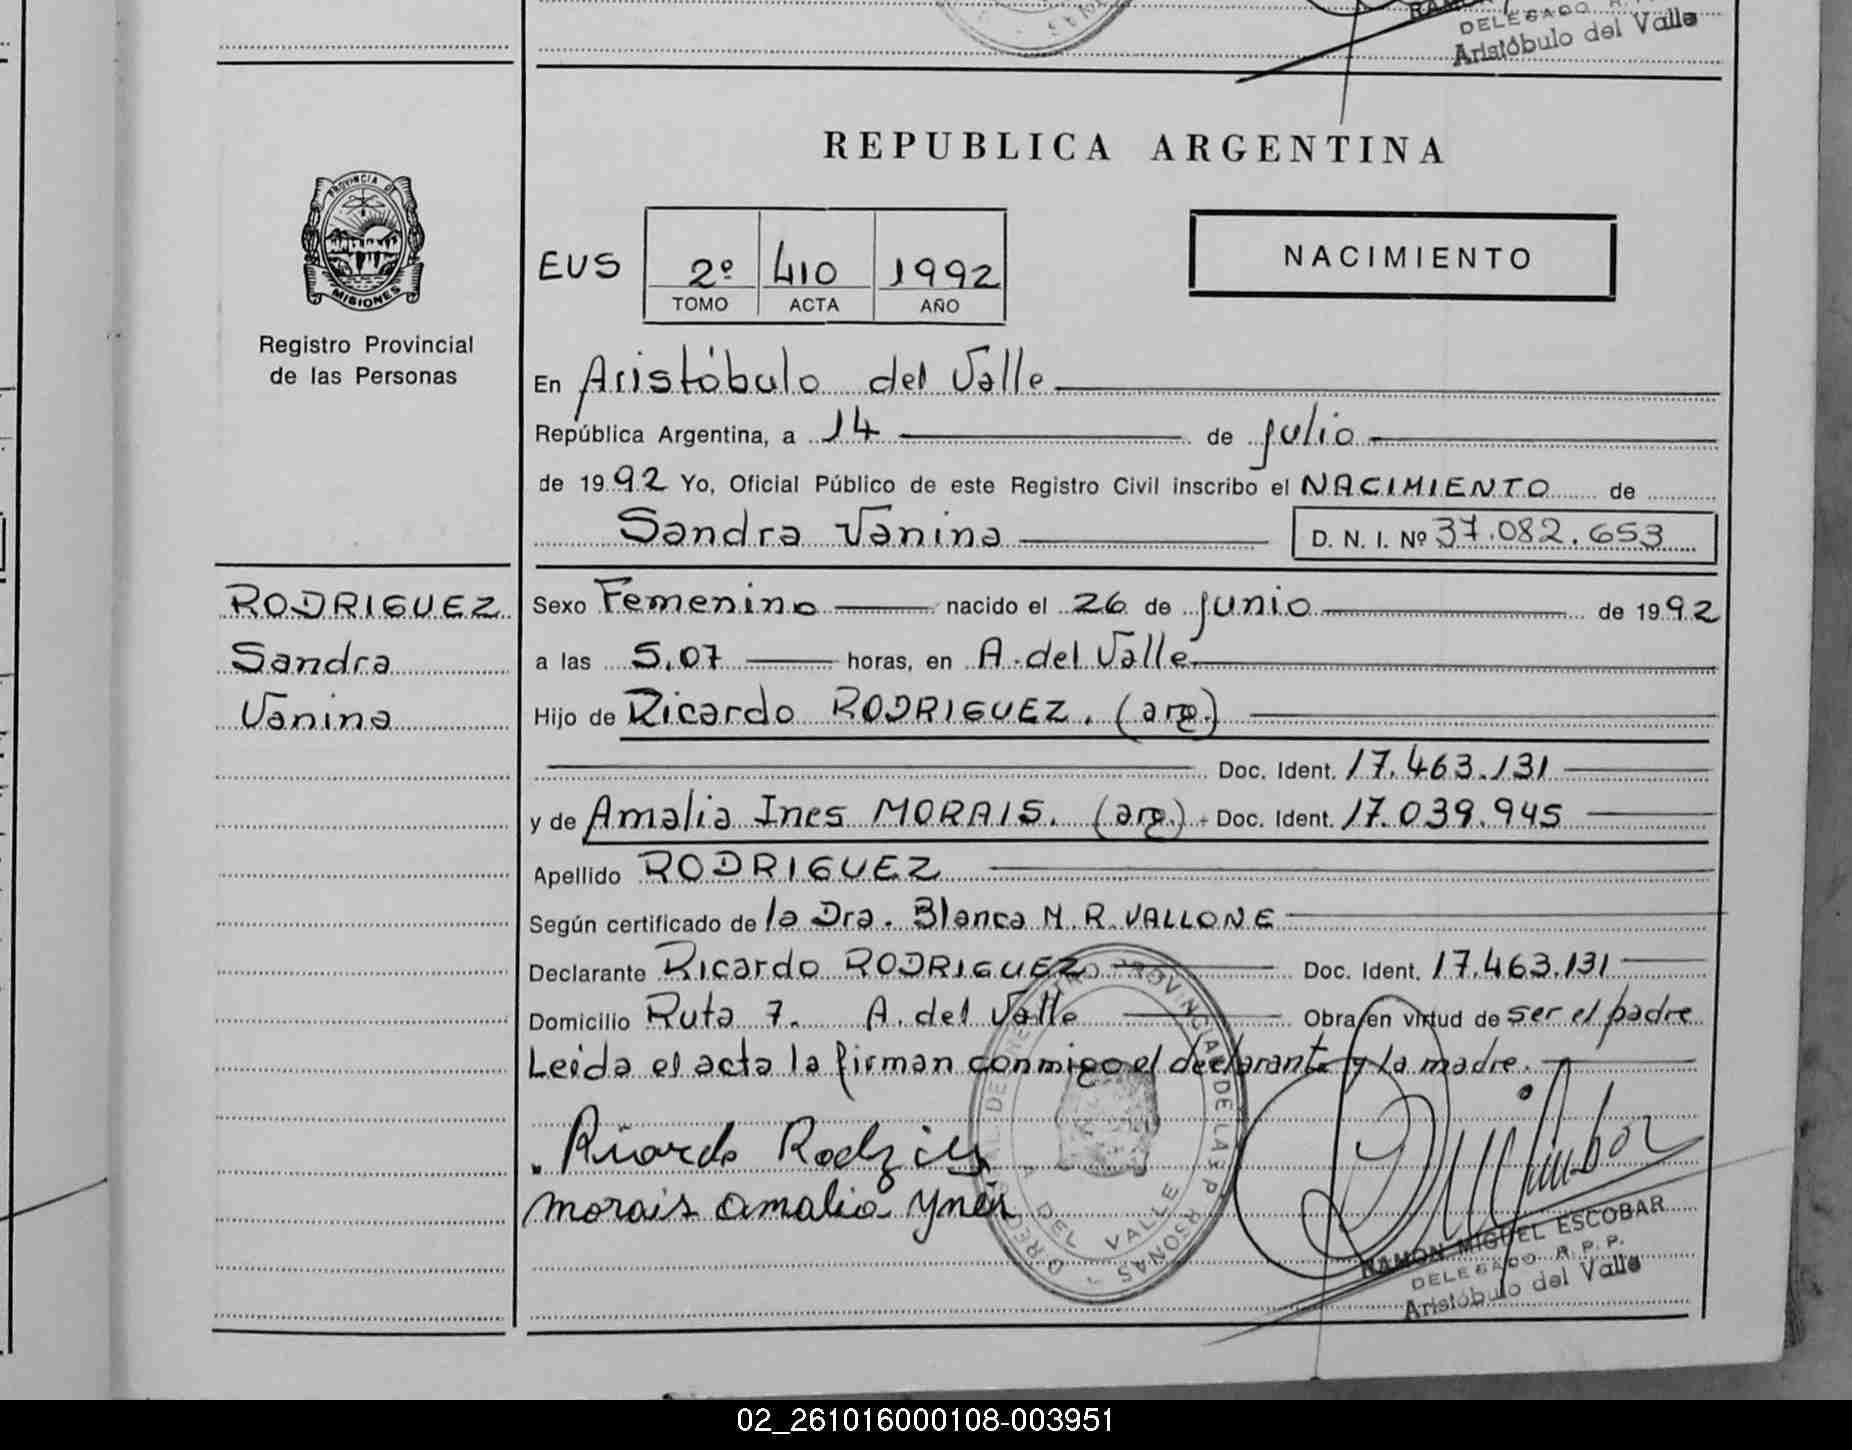 DELEGADO R.
Aristóbulo del Valle
REPUBLICA ARGENTINA
PROVINCIA DE
MISIONES
Registro Provincial
de las Personas
EUS 2º 410 1992
TOMO ACTA AÑO
NACIMIENTO
En Aristóbulo del Valle
República Argentina, a 14 de julio
de 1992 Yo, Oficial Público de este Registro Civil inscribo el NACIMIENTO de
Sandra Vanina D. N. I. Nº 37.082.653
RODRIGUEZ
Sandra
Vanina
Sexo Femenino nacido el 26 de junio de 1992
a las 5.07 horas, en A. del Valle
Hijo de Ricardo RODRIGUEZ. (arg.)
Doc. Ident. 17.463.131
y de Amalia Ines MORAIS. (arg.) Doc. Ident. 17.039.945
Apellido RODRIGUEZ
Según certificado de la Dra. Blanca M. R. VALLONE
Declarante Ricardo RODRIGUEZ Doc. Ident. 17.463.131
Domicilio Ruta 7. A. del Valle Obra en virtud de ser el padre
Leida el acta la firman conmigo el declarante y la madre.
Ricardo Rodriguez
morais amalia Ynés
PROVINCIAL DE LAS PERSONAS
DEL VALLE
RAMON MIGUEL ESCOBAR
DELEGADO R. P. P.
Aristóbulo del Valle
02_261016000108-003951